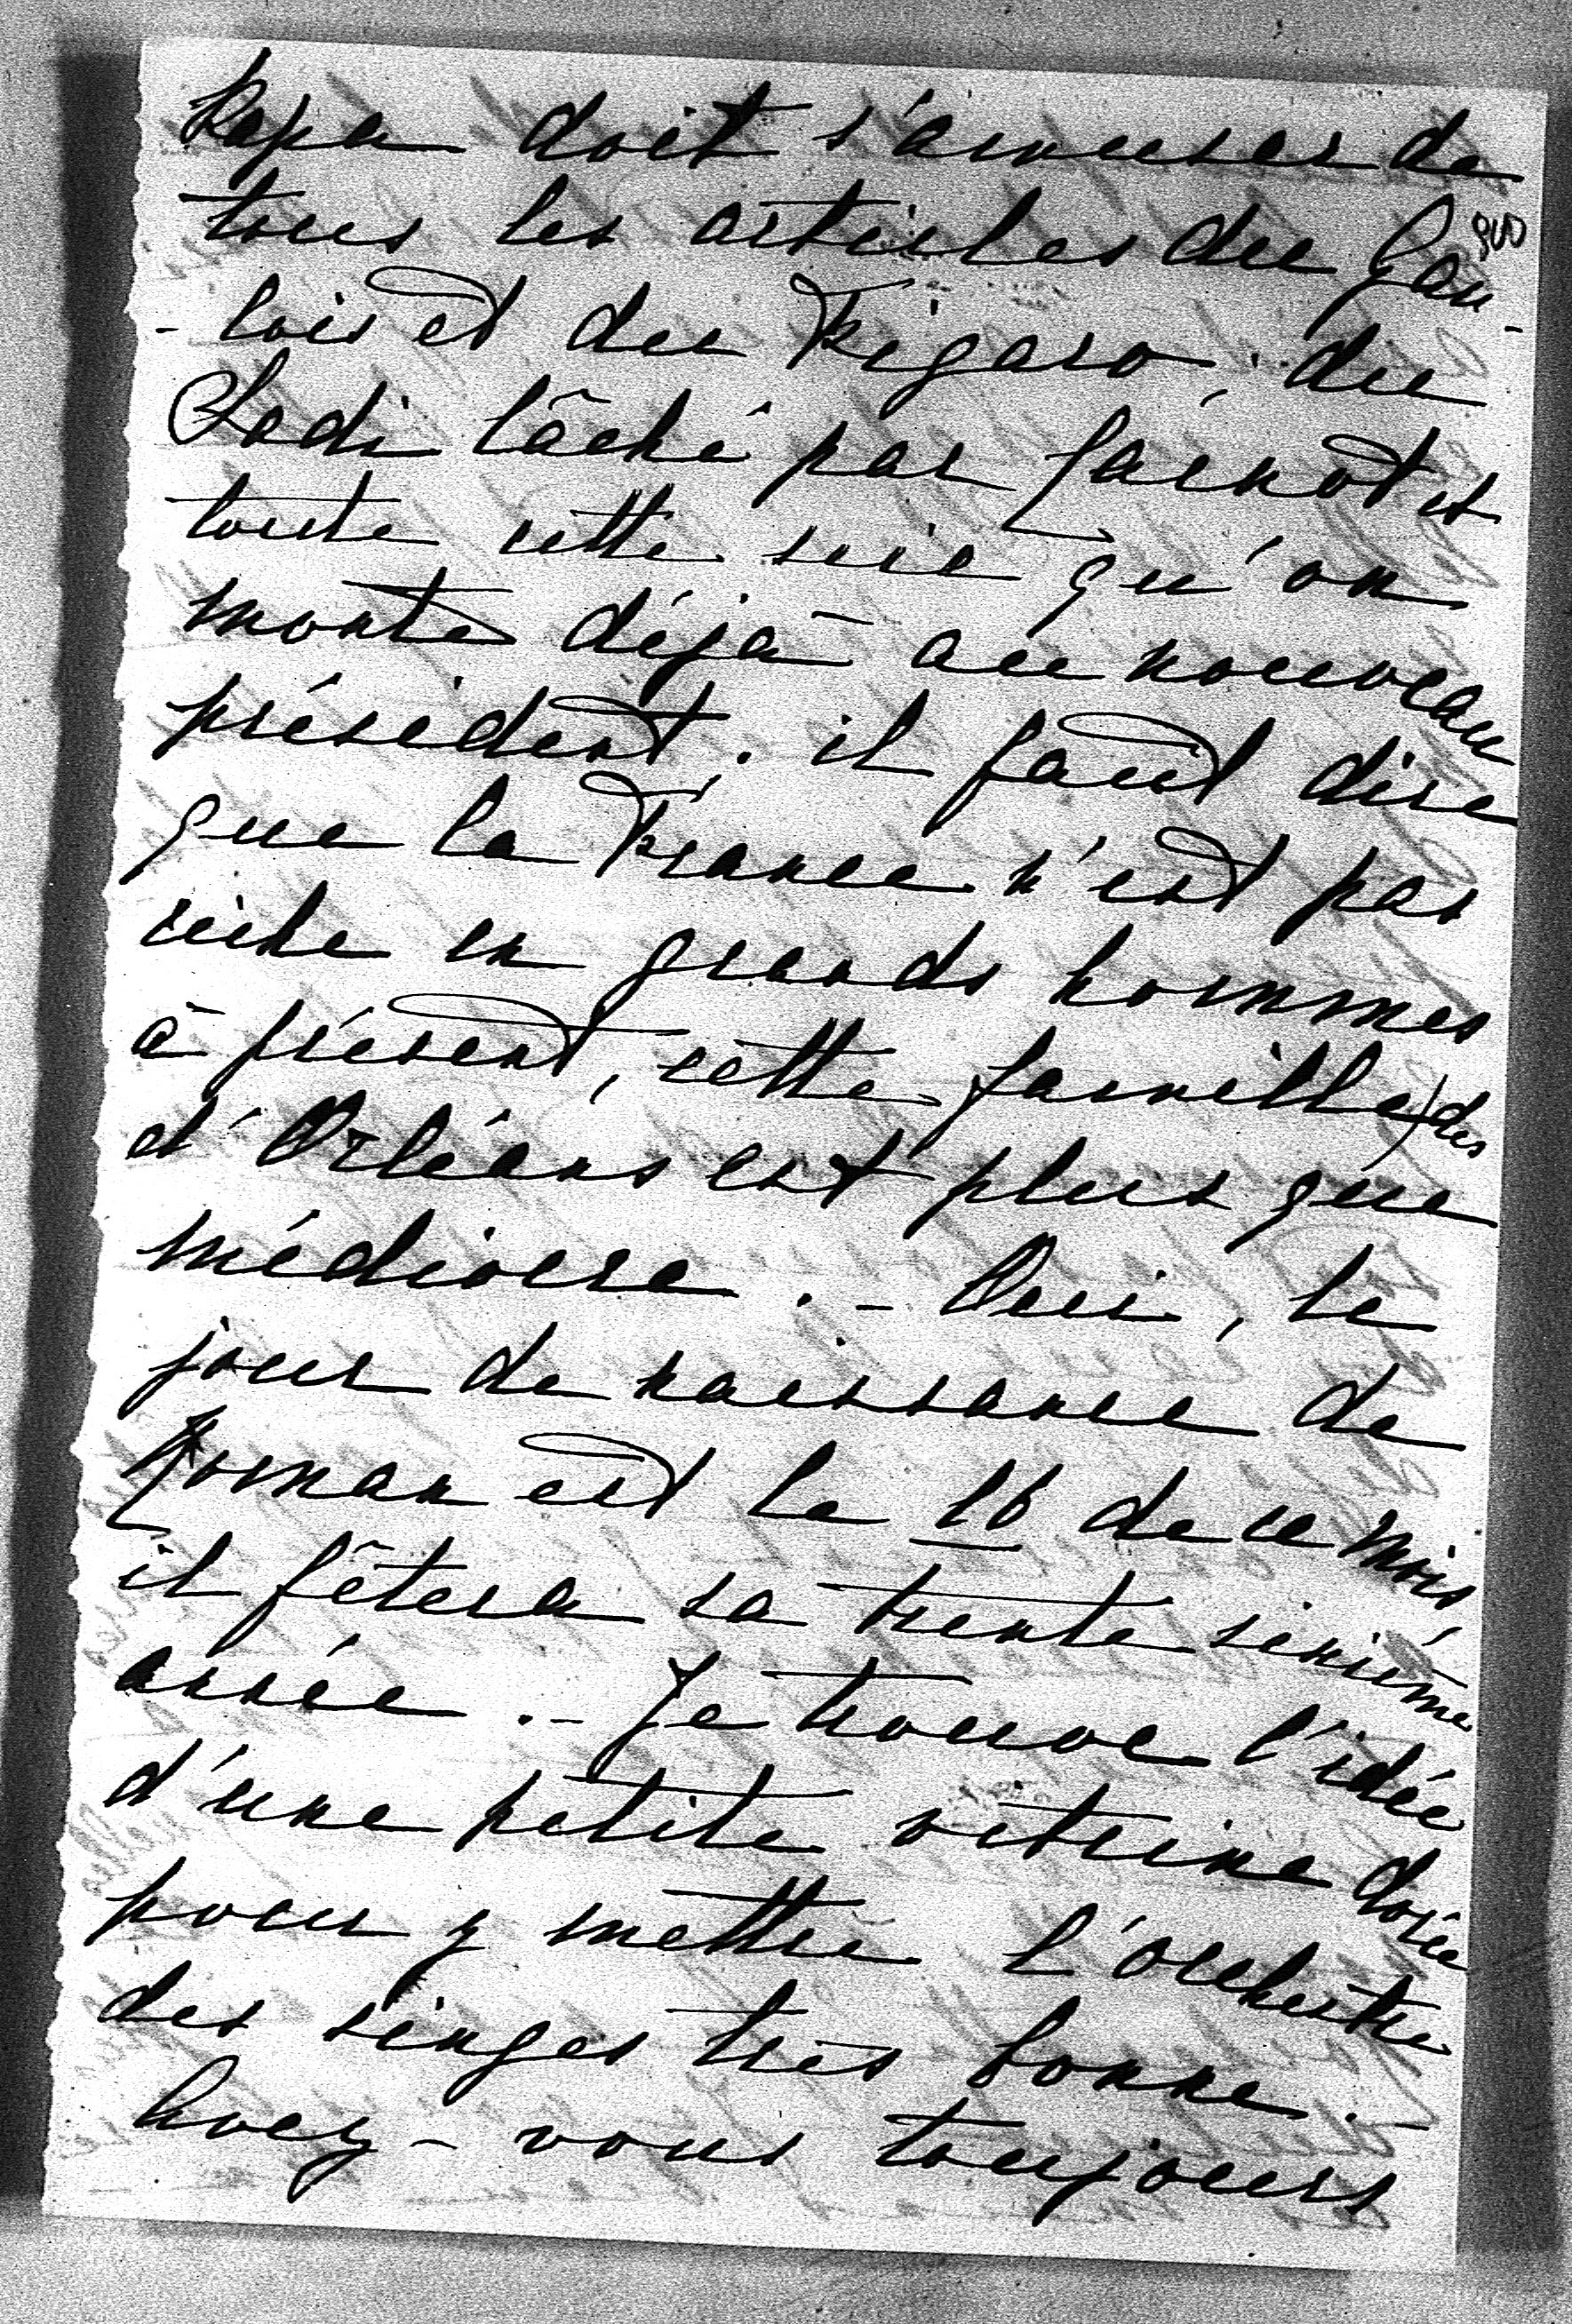 Papa doit s'amuser de
tous les articles du Gau-
-lois et du Figaro, du
Sadi lâché par Carnot et
toute cette scie qu'on
monte déjà au nouveau
président. il faut dire
que la France n'est pas
riche en grands hommes
à présent, cette famille des
d'Orléans est plus que
médiocre. - Oui, le
jour de naissance de
Roman est le 16 de ce mois,
il fêtera sa trente sixième
année. - Je trouve l'idée
d'une petite vitrine dorée
pour y mettre l'orchestre
des singes très bonne.
Avez-vous toujours